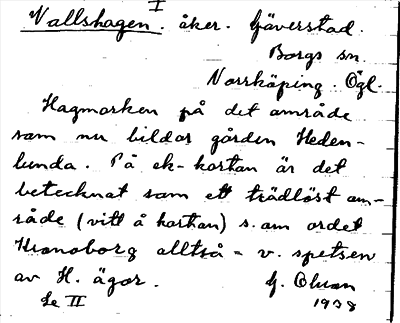 I
Vallshagen. åker. Gäverstad.
Borgs sn.
Norrköping. Ögl.
Hagmarken på det område
som nu bildar gården Heden-
lunda. På ek-kartan är det
betecknat som ett trädlöst om-
råde (vitt å kartan) s.om ordet
Kronoborg alltså = v. spetsen
av H. ägor. G. Olson
Se II 1938